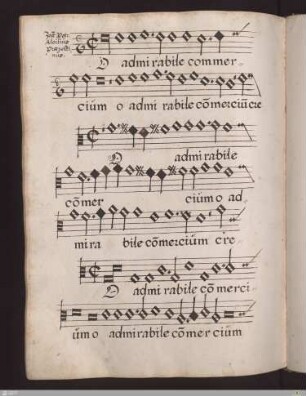 O admi rabile commer-
cium o admi rabile cõmerciũ cre
O admi rabile
cõmer cium o ad
mira bile cõmercium cre-
O admi rabile cõ merci
um o admirabile cõ mer cium